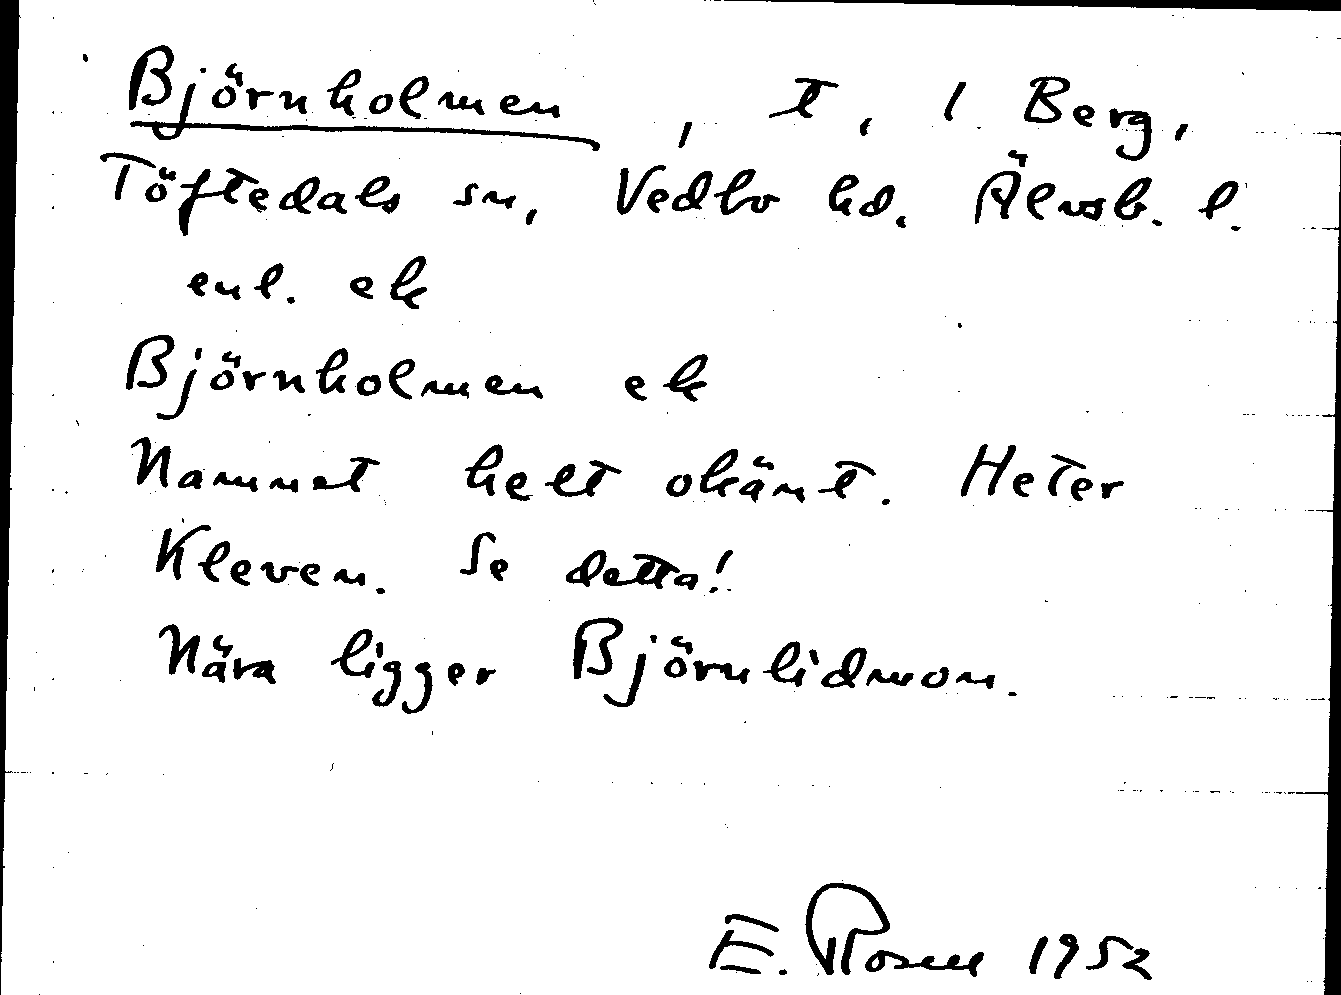 Björnholmen, t, 1 Berg,
Töftedals sn, Vedbo hd. Älvsb. l.
enl. ek
Björnholmen ek
Namnet helt okänt. Heter
Kleven. Se detta!
Nära ligger Björnlidmon.
E. Rosell 1952